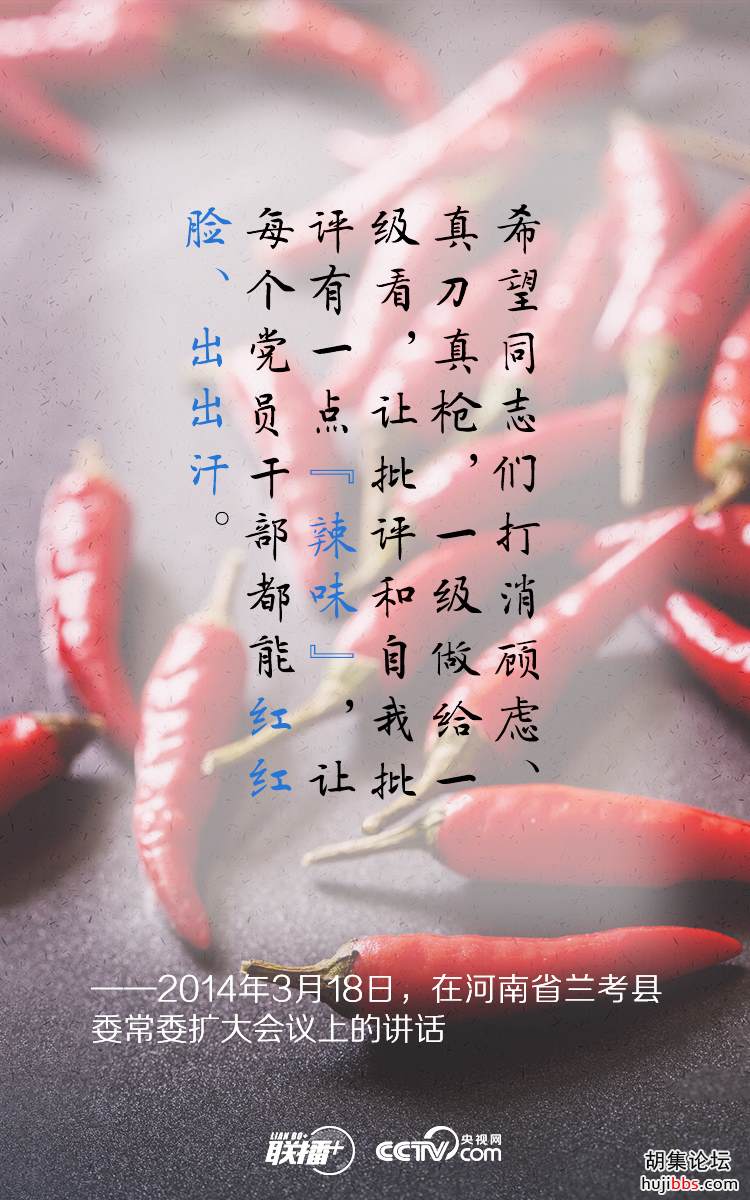 希望同志们打消顾虑、
真刀真枪，一级做给一
级看，让批评和自我批
评有一点『辣味』，让
每个党员干部都能红红
脸、出出汗。
——2014年3月18日，在河南省兰考县
委常委扩大会议上的讲话
LIAN BO+
联播+
CCTV.com
央视网
胡集论坛
hujibbs.com